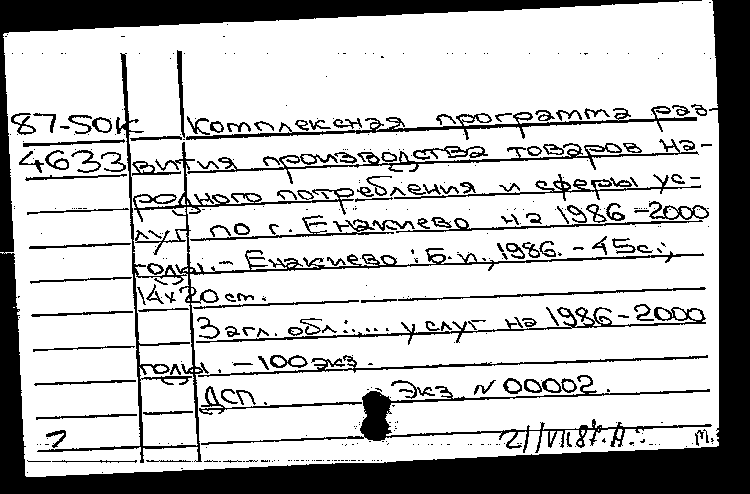 87-50К Комплексная программа раз-
4633 вития производства товаров на-
родного потребления и сферы ус-
луг по г. Енакиево на 1986-2000
годы. - Енакиево : Б.и., 1986. - 45с.;
14х20 см.
Загл. обл.: ... услуг на 1986-2000
годы. - 100 экз.
ДСП. Экз N 00002.